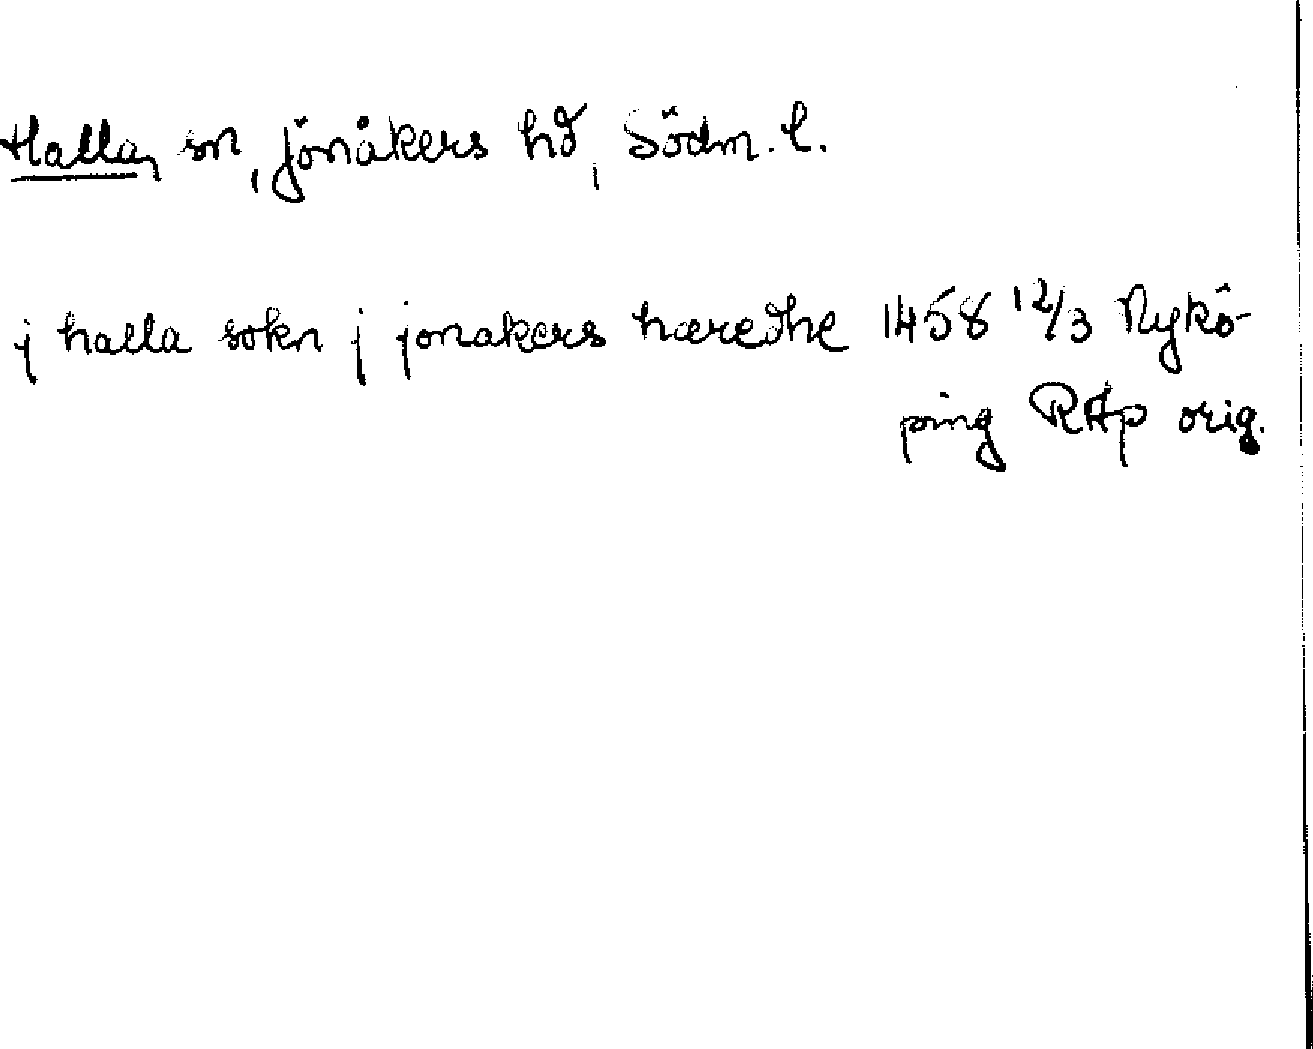 Halla, sn, Jönåkers hd, Södm. l.
j halla sokn j jonakers hæredhe 1458 12/3 Nykö-
ping RAp orig.